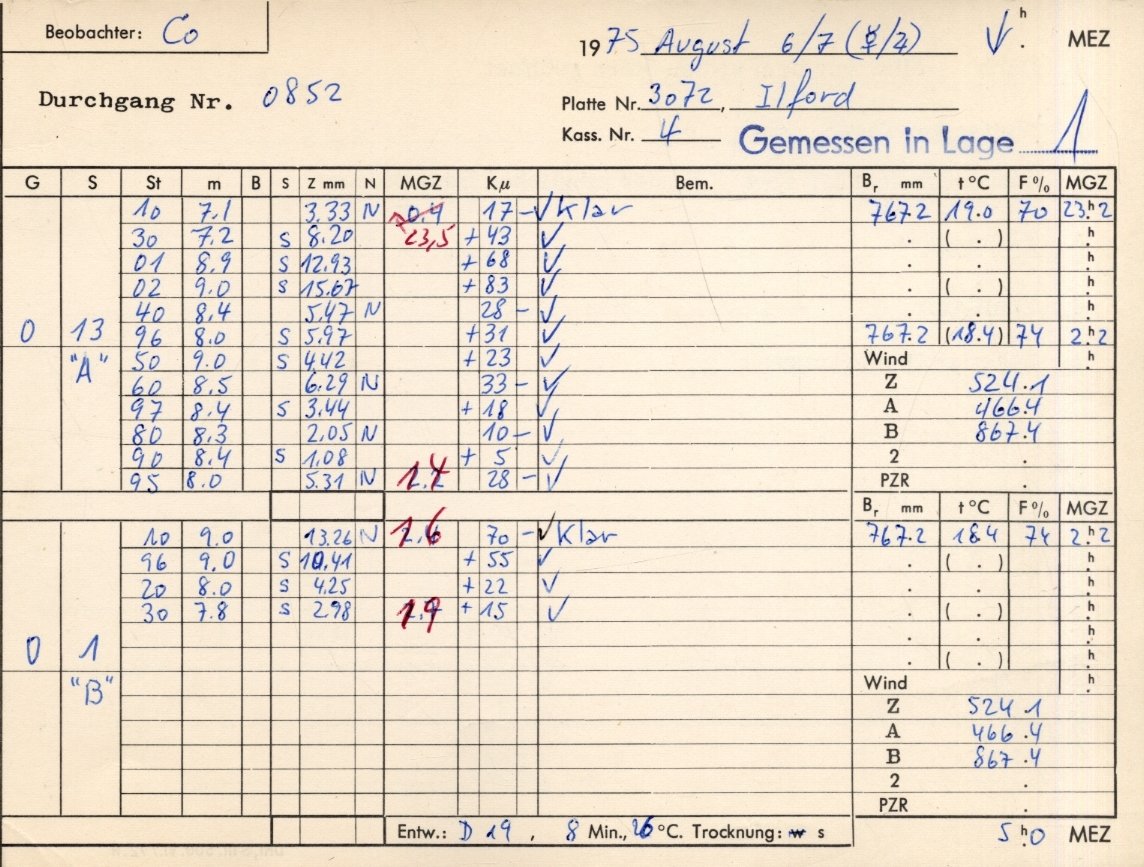 Beobachter: Co
1975 August 6/7 (☿/♃) h. MEZ
Durchgang Nr. 0852
Platte Nr. 3072, Ilford
Kass. Nr. 4 Gemessen in Lage 1
G S St m B S Z mm N MGZ Kμ Bem. Br mm t °C F % MGZ
10 7.1 3.33 N 0,4 17 – ✓ Klar 767.2 19.0 70 23.h2
30 7.2 S 8.20 23,5 + 43 ✓ . ( . ) .h
01 8.9 S 12.93 + 68 ✓ . .h
02 9.0 S 15.67 + 83 ✓ . ( . ) .h
40 8.4 5.47 N 28 – ✓ . .h
0 13 96 8.0 S 5.97 + 31 ✓ 767.2 (18.4) 74 2.h2
"A" 50 9.0 S 4.42 + 23 ✓ Wind .h
60 8.5 6.29 N 33 – ✓ Z 524.1
97 8.4 S 3.44 + 18 ✓ A 466.4
80 8.3 2.05 N 10 – ✓ B 867.4
90 8.4 S 1.08 + 5 ✓ 2 .
95 8.0 5.31 N 1.4 28 – ✓ PZR .
Br mm t °C F % MGZ
10 9.0 13.26 N 1.6 70 – ✓ Klar 767.2 18.4 74 2.h2
96 9.0 S 10.41 + 55 ✓ . ( . ) .h
20 8.0 S 4.25 + 22 ✓ . .h
30 7.8 S 2.98 1.9 + 15 ✓ . ( . ) .h
0 1 . .h
"B" . ( . ) .h
Wind .h
Z 524.1
A 466.4
B 867.4
2 .
PZR .
Entw.: D 19, 8 Min., °C. Trocknung: w s 5 h.0 MEZ